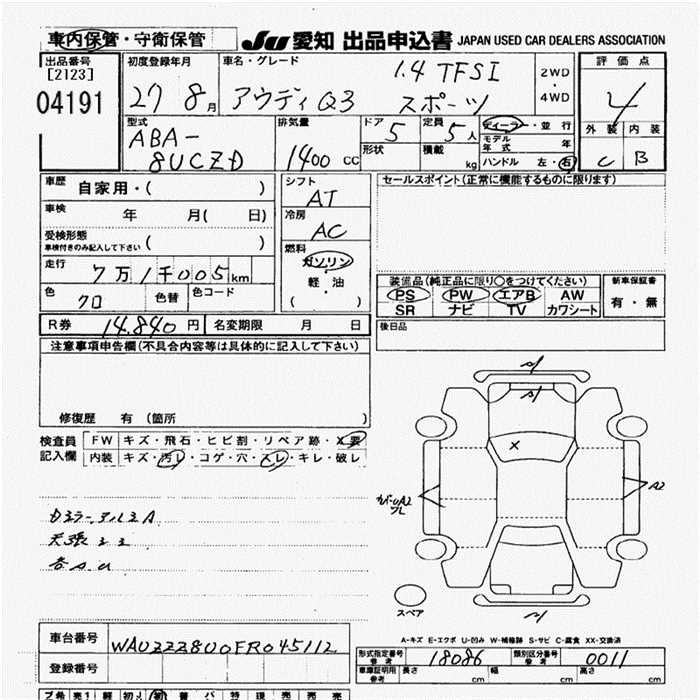 車内保管・守衛保管 JU 愛知 出品申込書 JAPAN USED CAR DEALERS ASSOCIATION
出品番号 初度登録年月 車名・グレード 1.4 TFSI 2WD・4WD 評価点
[2123] 04191 27 8月 アウディQ3 スポーツ 4
型式 排気量 ドア 5 定員 5人 ディーラー・並行 外装 内装
ABA-8UCZD 1400 CC 形状 積載 kg モデル年式 年 C B
ハンドル 左・右
車歴 自家用・( ) シフト AT セールスポイント(正常に機能するものに限ります)
車検 年 月( 日) 冷房 AC
受検形態 車検付きのみ記入して下さい ( ) 燃料
走行 7万1千005km ガソリン・軽油・( )
装備品(純正品に限り○をつけてください) 新車保証書
色 クロ 色替 色コード PS PW エアB AW 有・無
SR ナビ TV カワシート
R券 14,840円 名変期限 月 日 後日品
注意事項申告欄(不具合内容等は具体的に記入して下さい)
修復歴 有 (箇所 )
検査員記入欄 FW キズ・飛石・ヒビ割・リペア跡・X要
内装 キズ・汚レ・コゲ・穴・スレ・キレ・破レ
X
A2
スペア
A-キズ E-エクボ U-凹み W-補修跡 S-サビ C-腐食 XX-交換済
車台番号 WAUZZZ8U0FR045112 形式指定番号 参考 18086 類別区分番号 参考 0011
登録番号 車庫証明用 参考 長さ cm 幅 cm 高さ cm